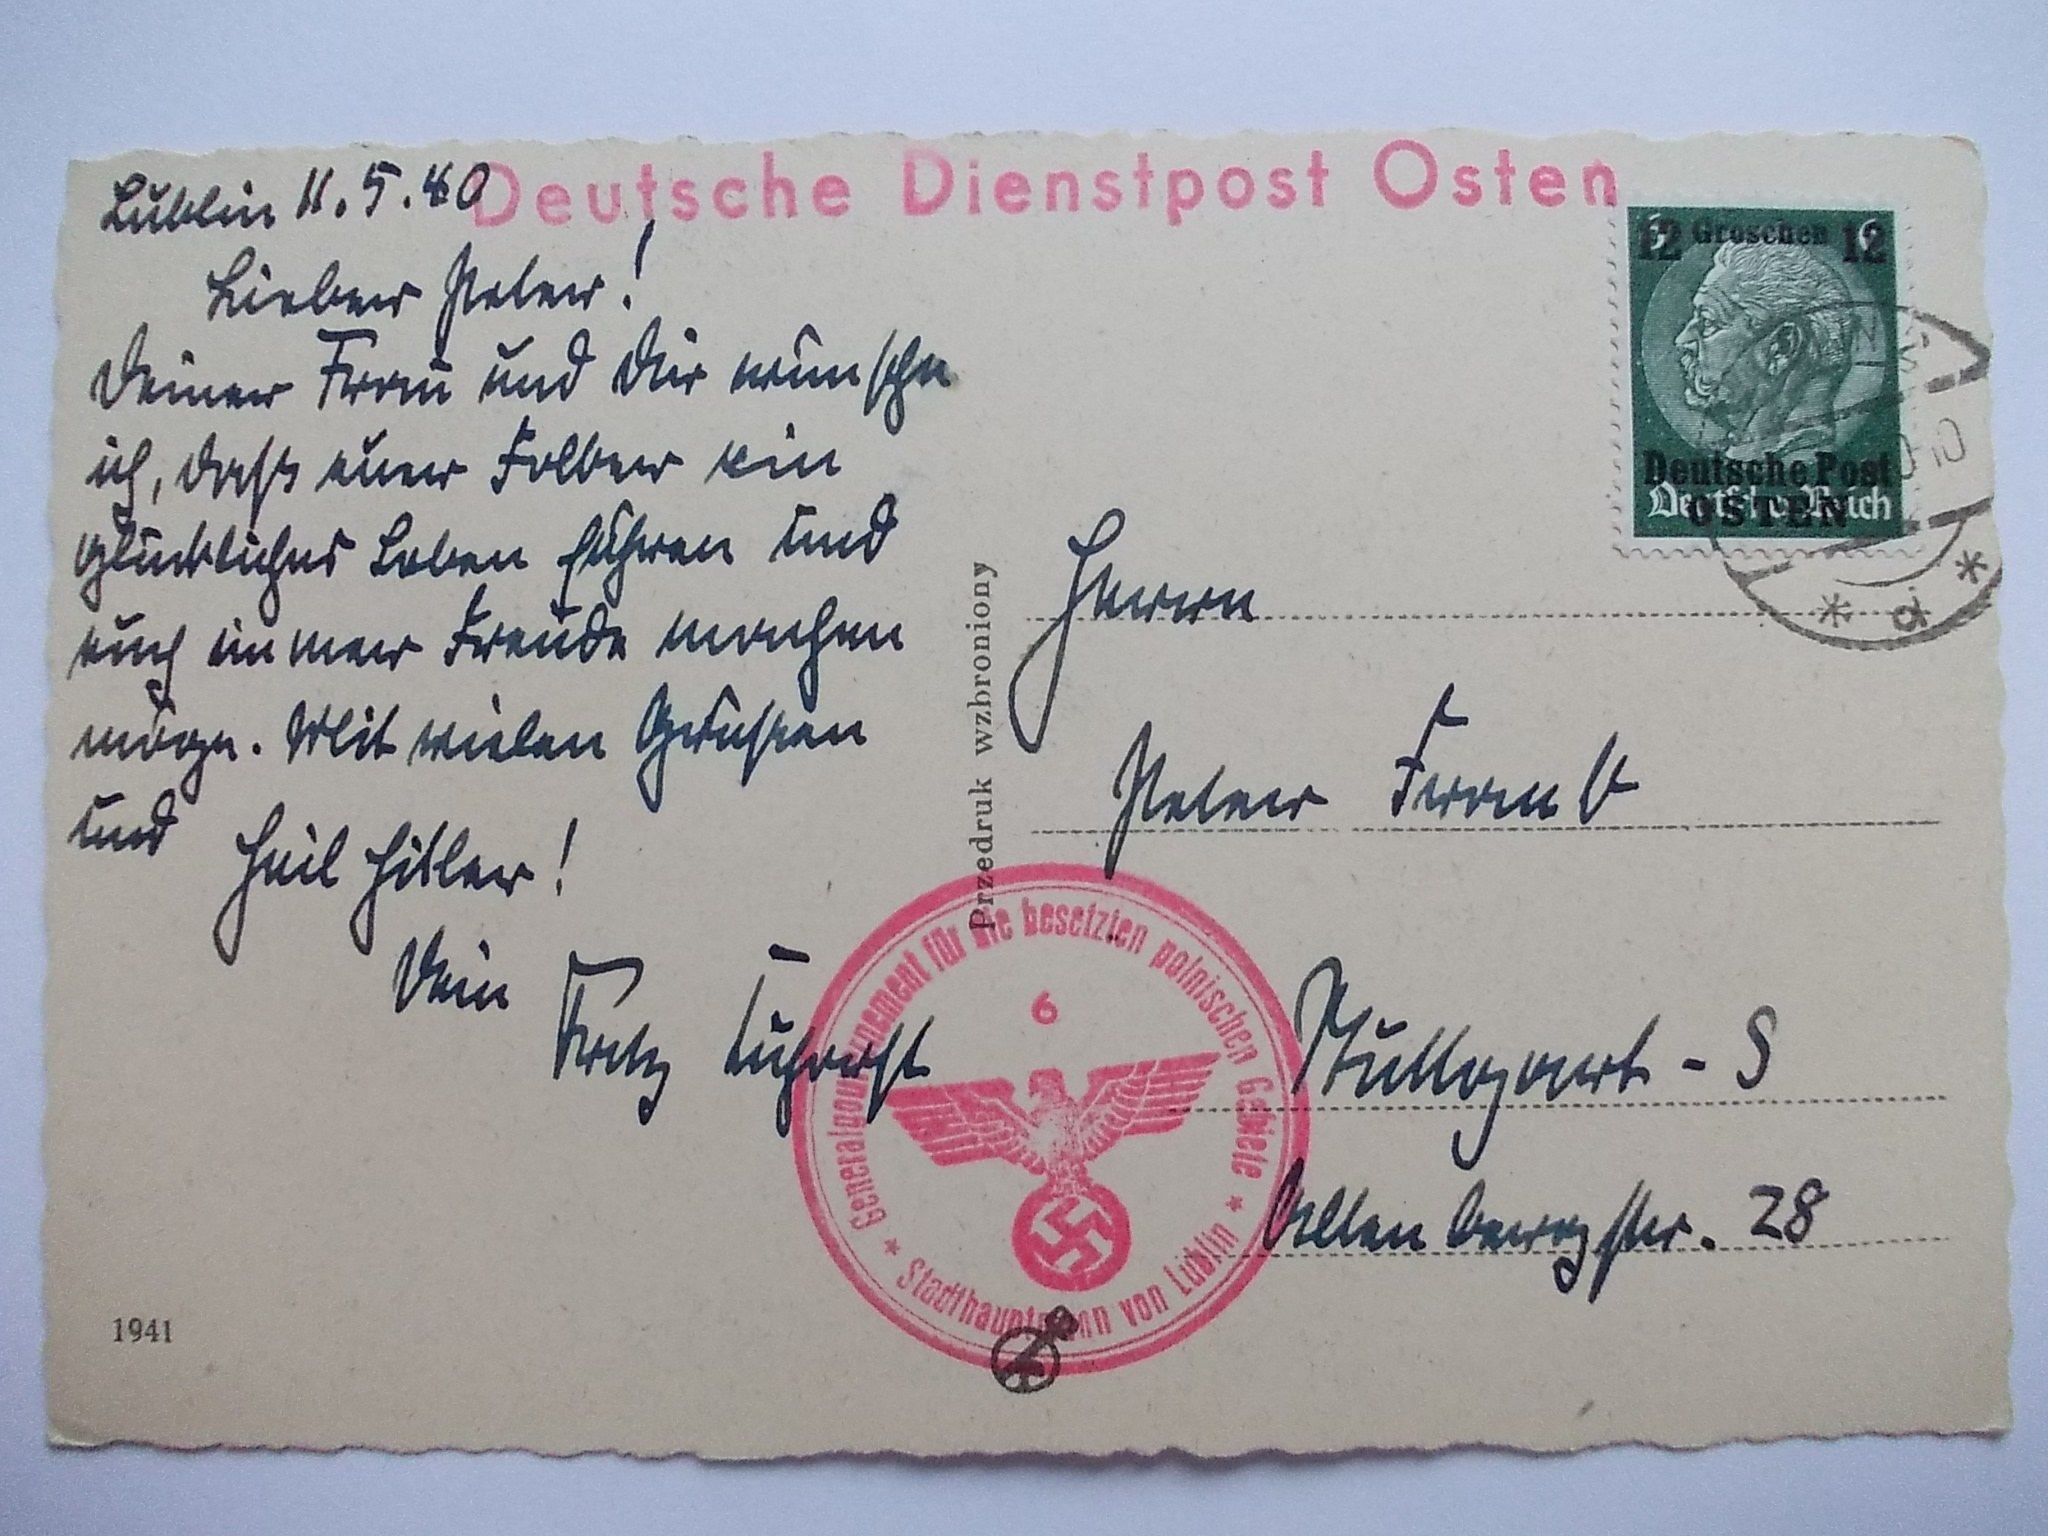 Deutsche Dienstpost Osten
Lublin 11.5.40
Lieber Peter!
Deiner Frau und Dir wünsche
ich, daß euer Folber ein
glückliches Leben führen und
euch immer Freude machen
möge. Mit vielen Grüßen
und
Heil Hitler!
Dein
Fritz
1941
Przedruk wzbroniony
12 Groschen 12
Deutsche Post
OSTEN
Deutsches Reich
Herrn
Peter
Stuttgart-S
Altenbergstr. 28
Generalgouvernement für die besetzten polnischen Gebiete
6
* Stadthauptmann von Lublin *